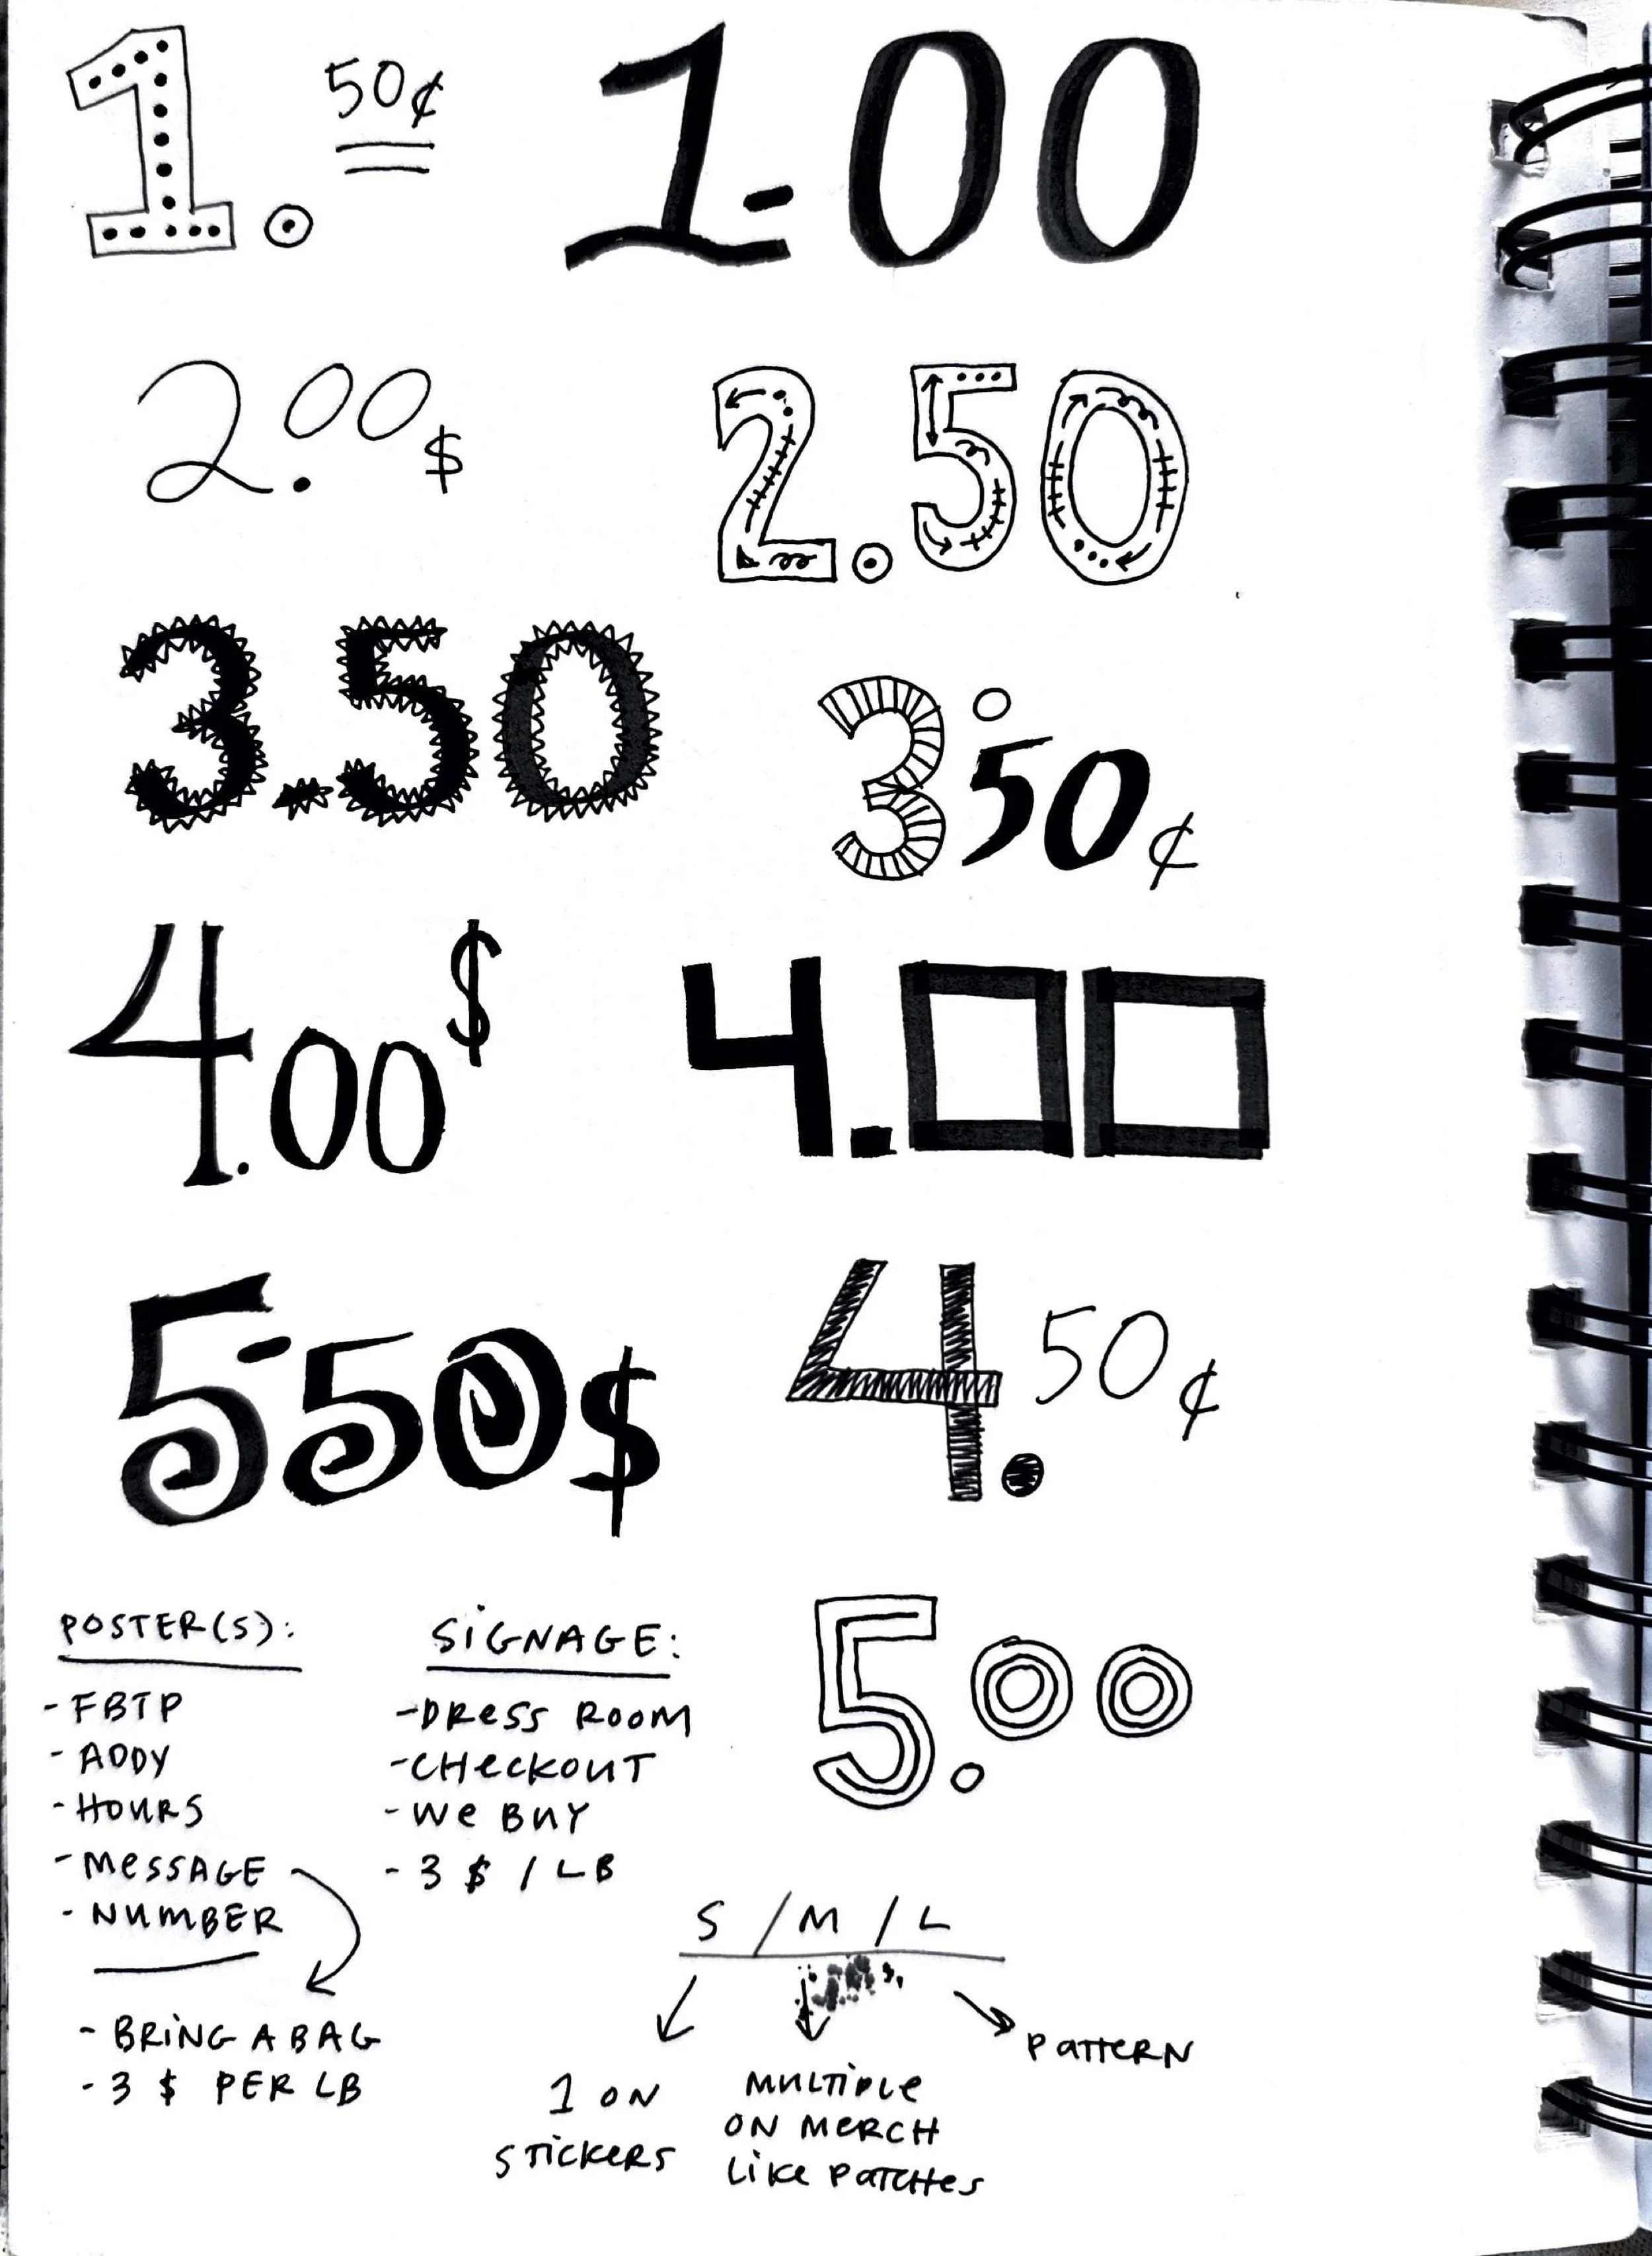 1. 50¢
1.00
2.00$
2.50
3.50
3.50¢
4.00$
4.00
5.50$
4.50¢
5.00
POSTER(S):
- FBTP
- ADDY
- HOURS
- MESSAGE
- NUMBER
- BRING A BAG
- 3 $ PER LB
SIGNAGE:
- DRESS ROOM
- CHECKOUT
- WE BUY
- 3 $ / LB
S / M / L
1 ON
STICKERS
MULTIPLE
ON MERCH
LIKE PATCHES
PATTERN